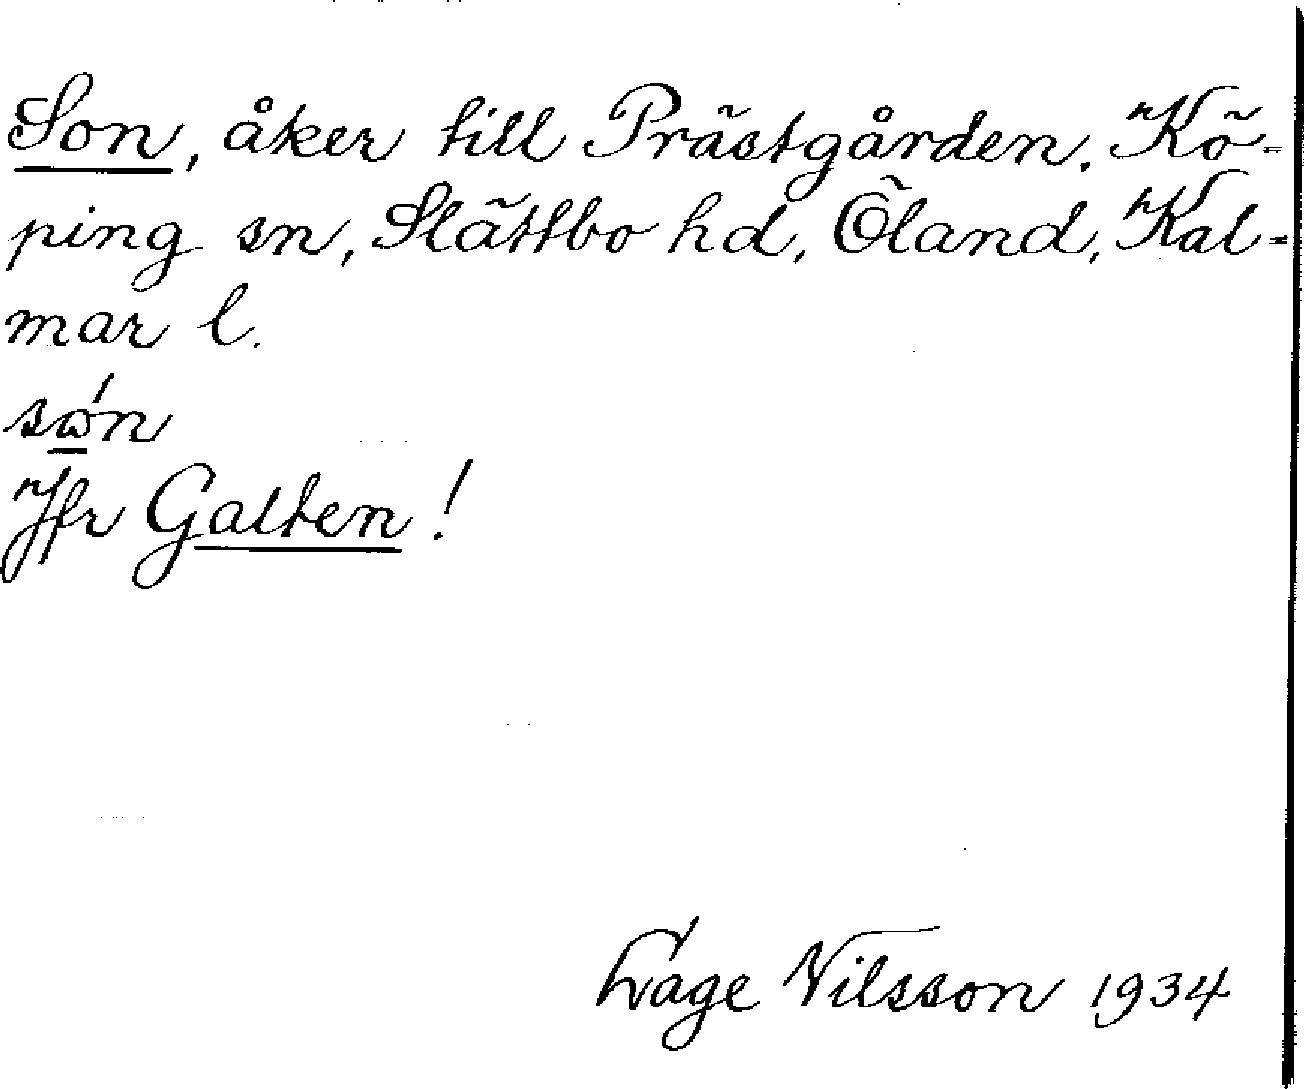 Son, åker till Prästgården, Kö-
ping sn, Slättbo hd, Öland, Kal-
mar l.
Jfr Galten!
Lage Nilsson 1934